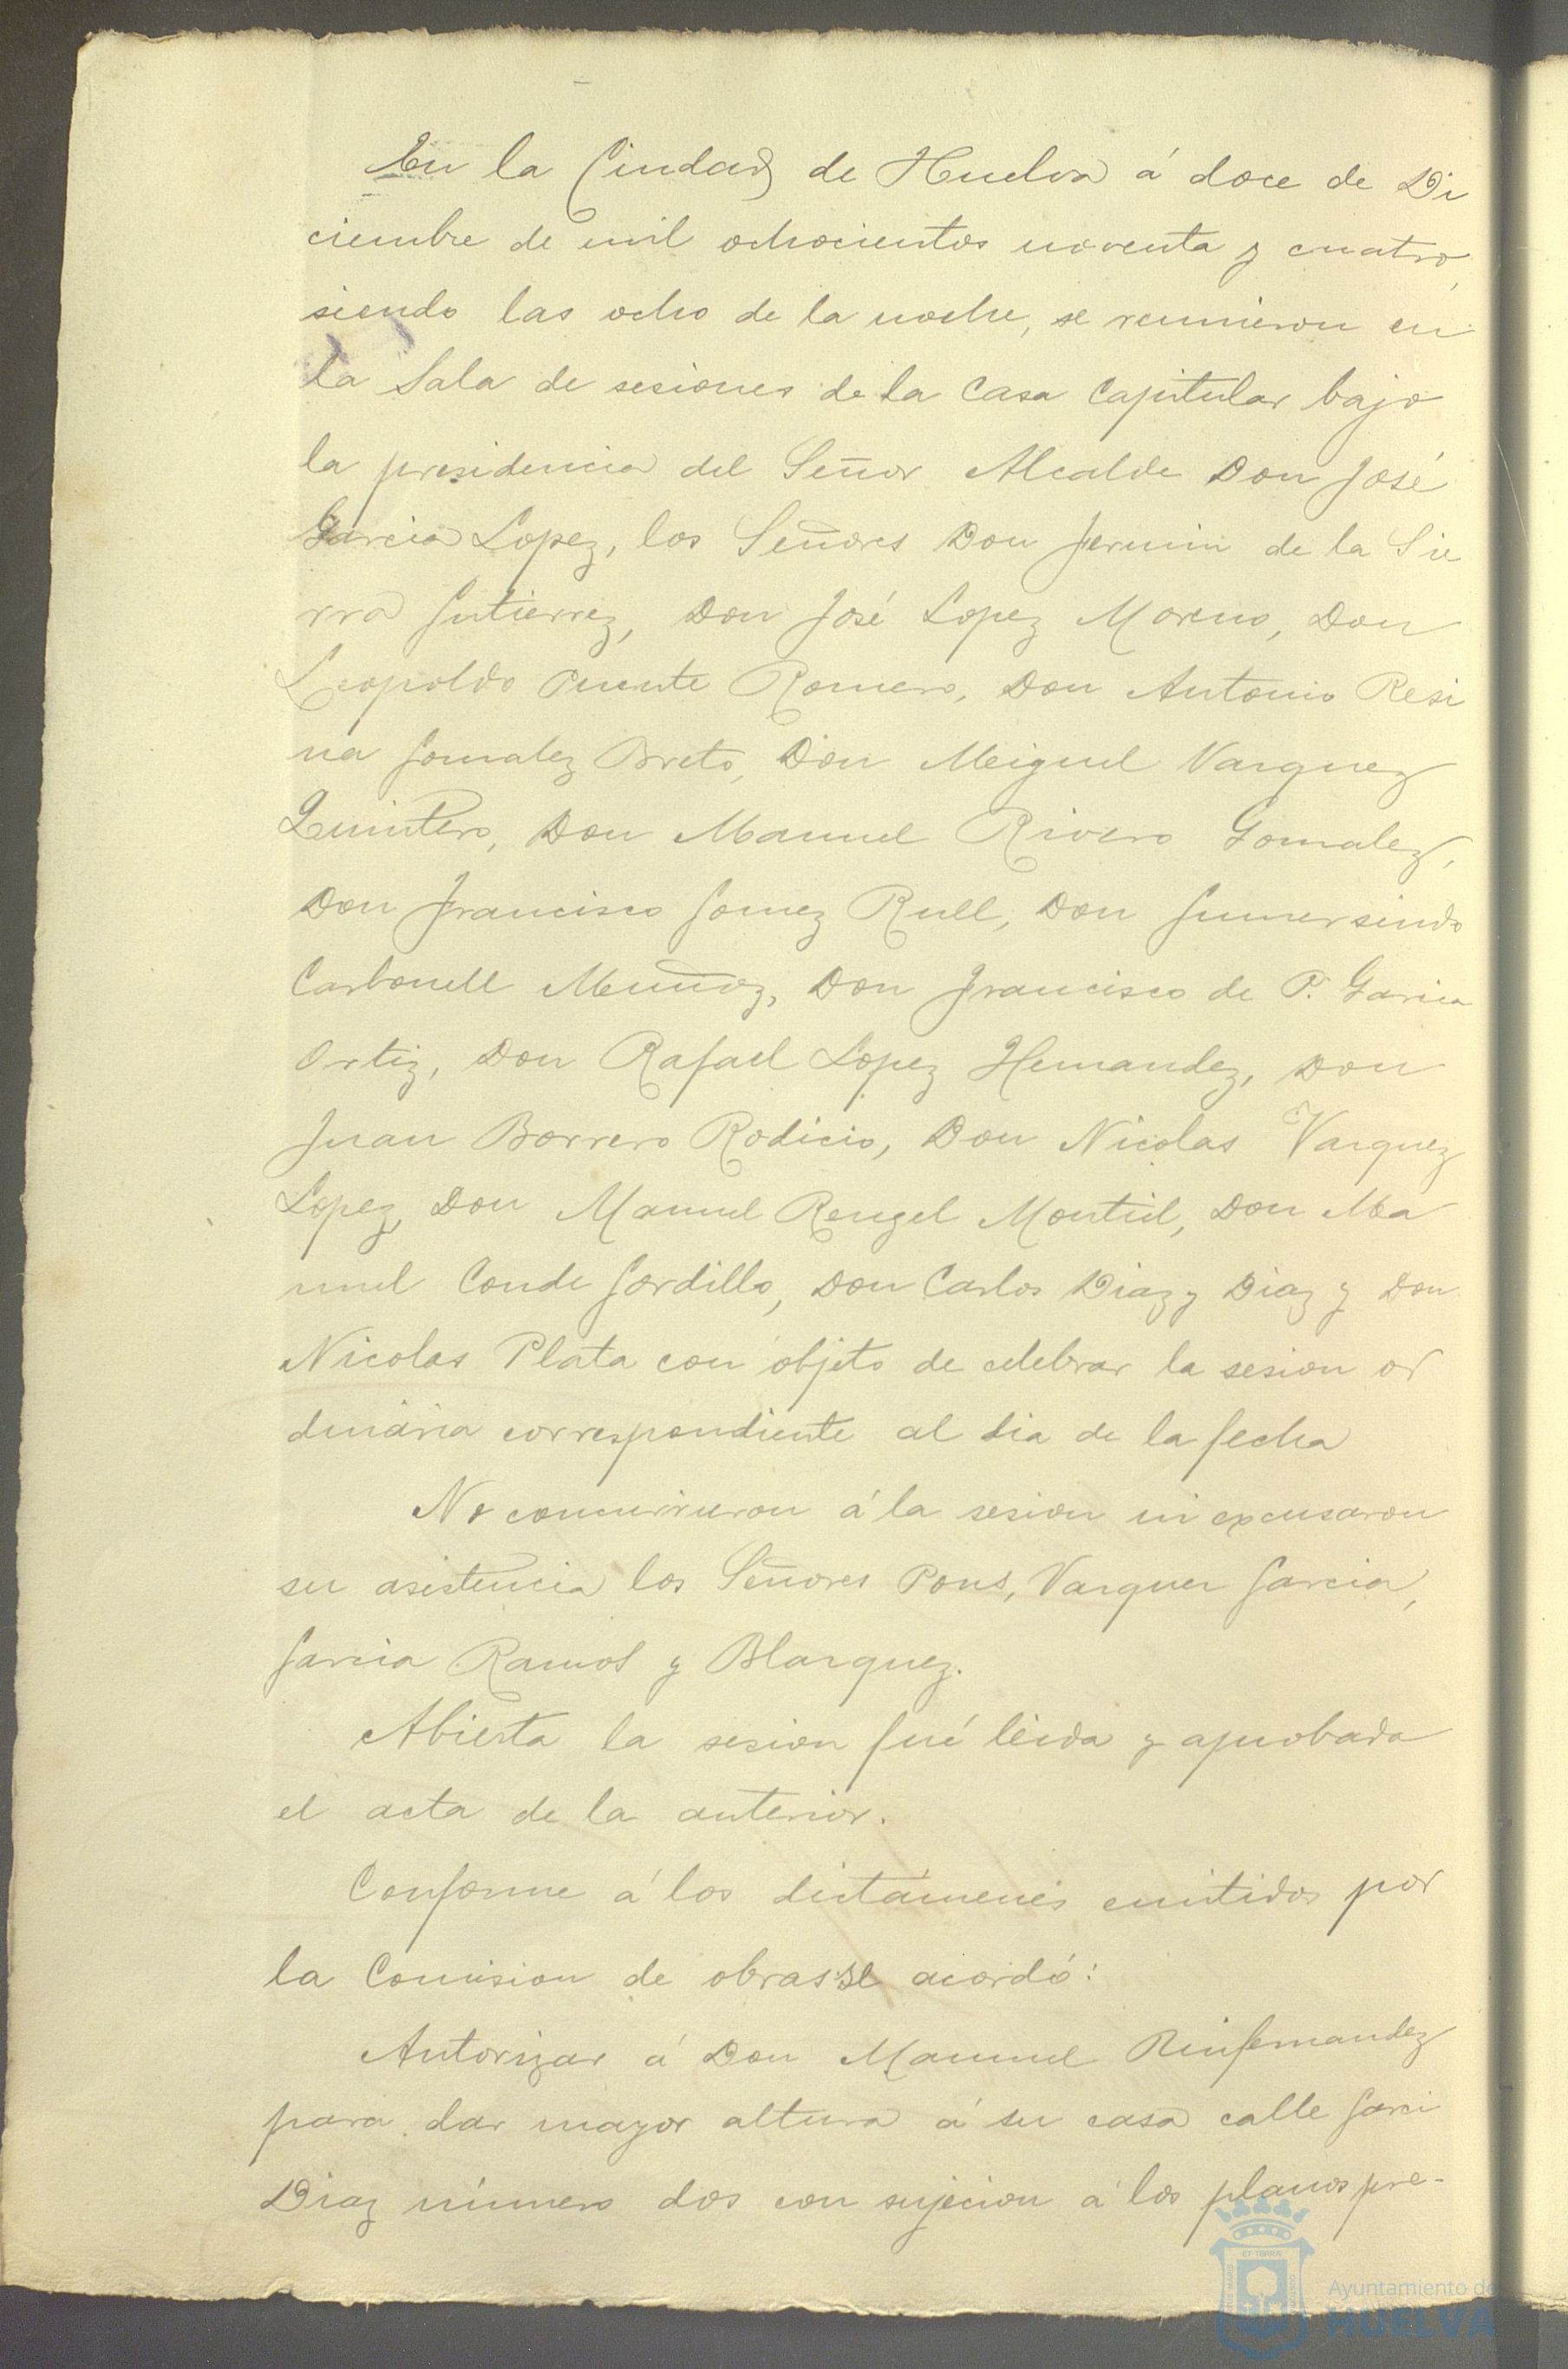 En la Ciudad de Huelva á doce de Di
ciembre de mil ochocientos noventa y cuatro,
siendo las ocho de la noche, se reunieron en
la Sala de sesiones de la Casa Capitular bajo
la presidencia del Señor Alcalde Don José
Garcia Lopez, los Señores Don Fermin de la Sie
rra Gutierrez, Don José Lopez Moreno, Don
Leopoldo Puente Romero, Don Antonio Resi
na Gonzalez Breto, Don Miguel Vazquez
Quintero, Don Manuel Rivero Gonzalez,
Don Francisco Gomez Rull, Don Gumersindo
Carbonell Muñoz, Don Francisco de P. Garcia
Ortiz, Don Rafael Lopez Hernandez, Don
Juan Borrero Rodicio, Don Nicolas Vazquez
Lopez, Don Manuel Rengel Montiel, Don Ma
nuel Conde Gordillo, Don Carlos Diaz y Diaz y Don
Nicolas Plata con objeto de celebrar la sesion or
dinaria correspondiente al dia de la fecha
No concurrieron á la sesion ni excusaron
su asistencia los Señores Pons, Vazquez Garcia,
Garcia Ramos y Blazquez.
Abierta la sesion fué leida y aprobada
el acta de la anterior.
Conforme á los dictámenes emitidos por
la Comision de obras se acordó:
Autorizar á Don Manuel Rinfernandez
para dar mayor altura á su casa calle Garci
Diaz número dos con sujecion á los planos pre-
Ayuntamiento de
HUELVA